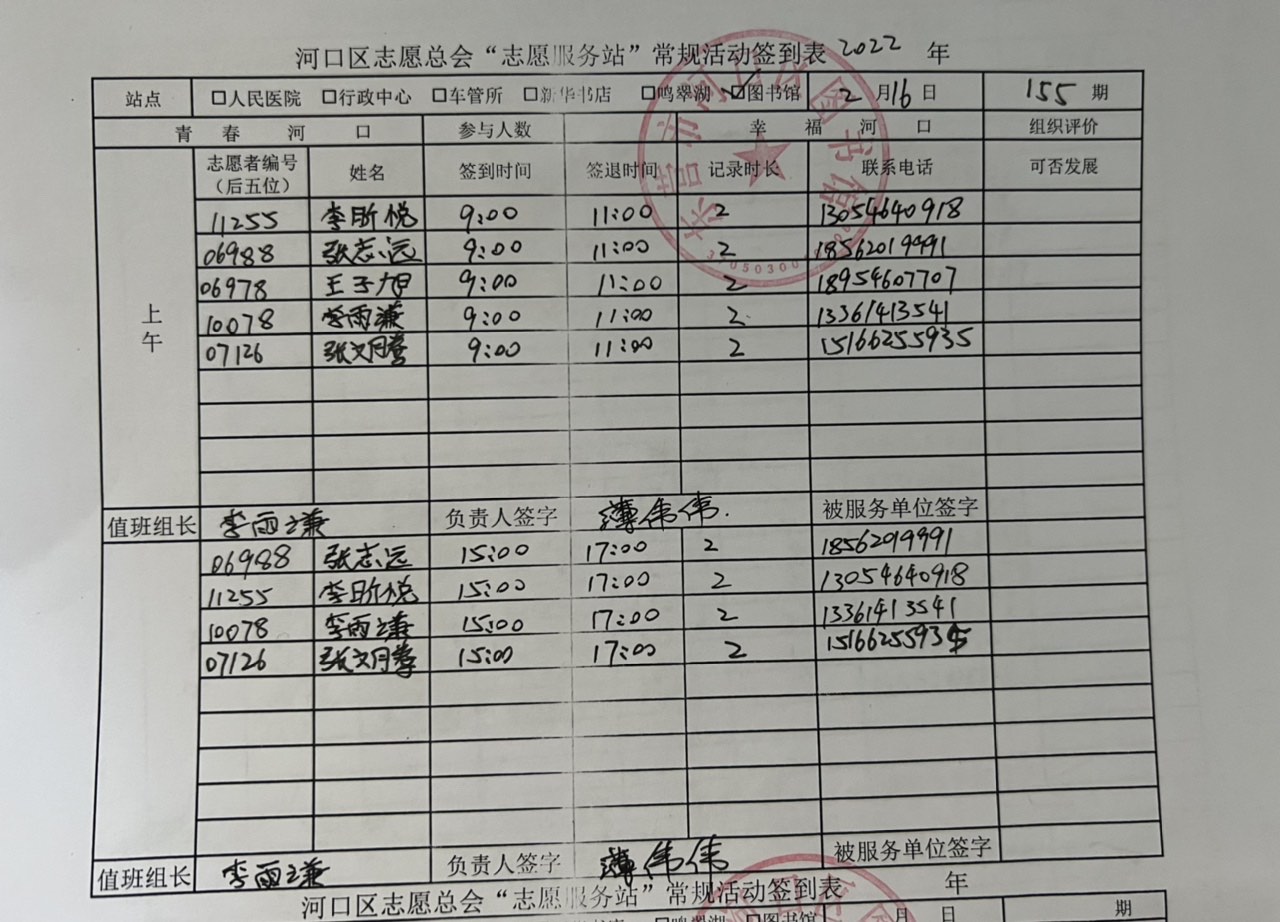 河口区志愿总会“志愿服务站”常规活动签到表 2022 年
站点 □人民医院 □行政中心 □车管所 □新华书店 □鸣翠湖 ☑图书馆 2 月 16 日 155 期
青春河口 参与人数 幸福河口 组织评价
志愿者编号（后五位） 姓名 签到时间 签退时间 记录时长 联系电话 可否发展
上午
11255 李昕悦 9:00 11:00 2 13054640918
06988 张志远 9:00 11:00 2 18562019991
06978 王子旭 9:00 11:00 2 18954607707
10078 李雨谦 9:00 11:00 2 13361413541
07126 张文月 9:00 11:00 2 15166255935
值班组长 李雨谦 负责人签字 薄伟伟 被服务单位签字
06988 张志远 15:00 17:00 2 18562019991
11255 李昕悦 15:00 17:00 2 13054640918
10078 李雨谦 15:00 17:00 2 13361413541
07126 张文月 15:00 17:00 2 15166255935
值班组长 李雨谦 负责人签字 薄伟伟 被服务单位签字
河口区志愿总会“志愿服务站”常规活动签到表 年
□鸣翠湖 □图书馆 月 日 期
东营市河口区图书馆